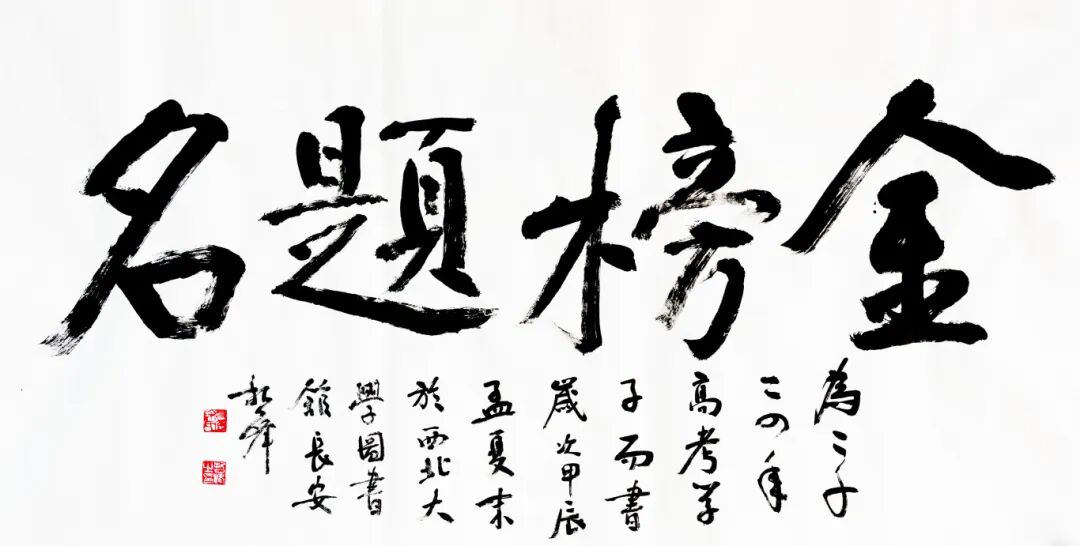 金榜題名
為二零
二四年
高考学
子而書
歲次甲辰
孟夏末
於西北大
學圖書
館長安